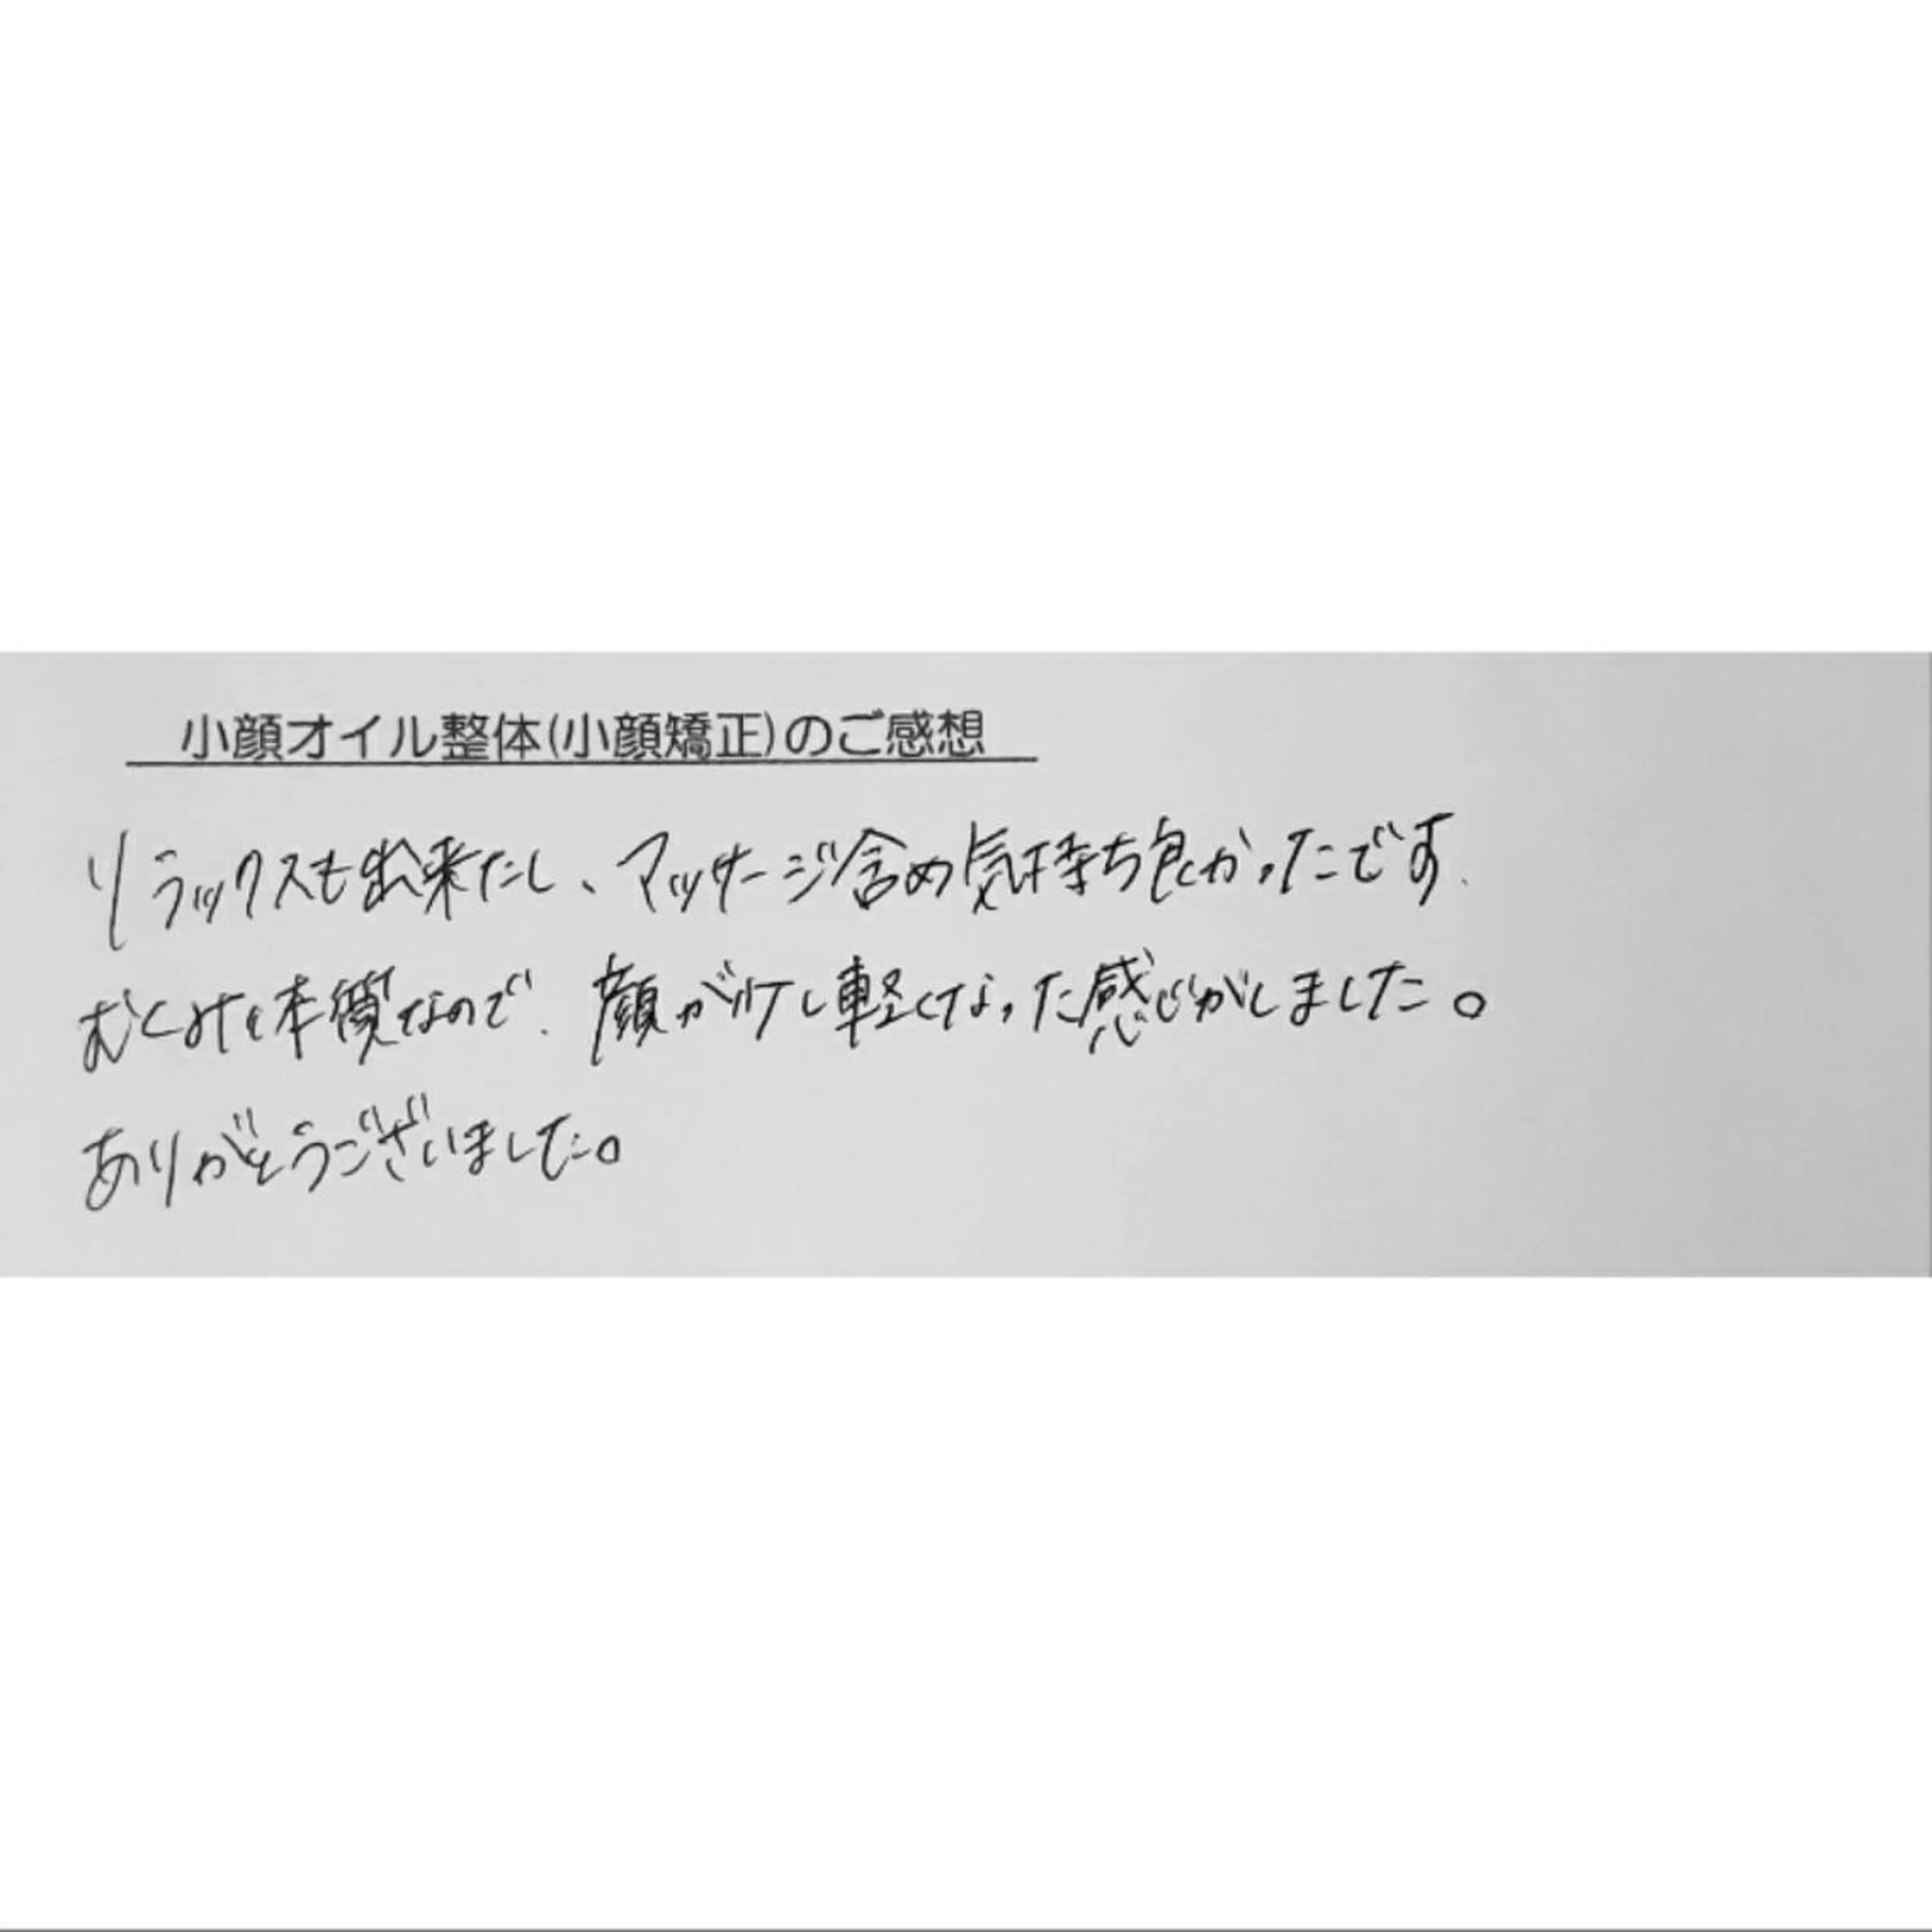 小顔オイル整体(小顔矯正)のご感想
リラックスも出来たし、マッサージ含め気持ち良かったです.
むくみやすい体質なので、顔が少し軽くなった感じがしました。
ありがとうございました。